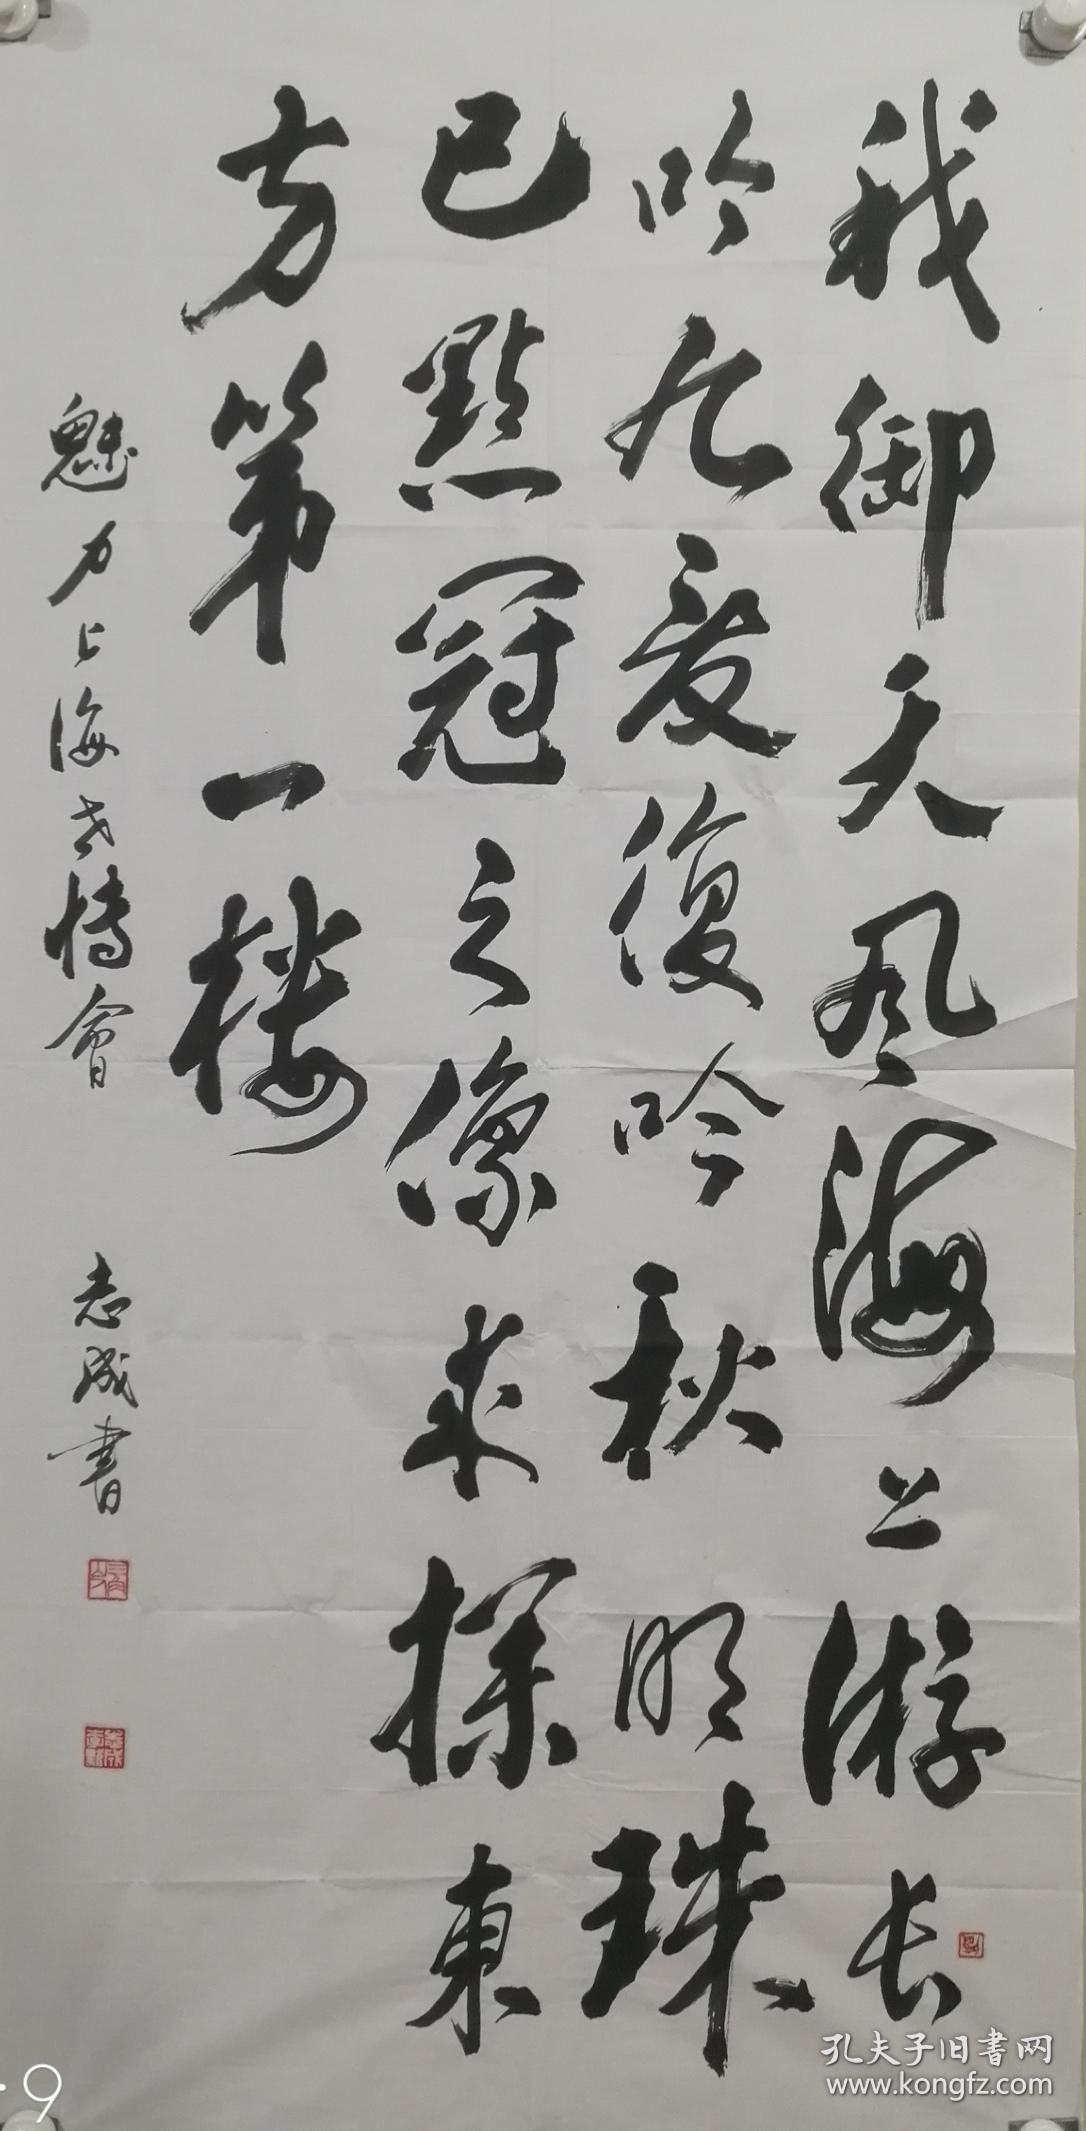 我御天风海上游长
吟九夏復吟秋明珠
已點冠之像來探東
方第一楼
魅力上海世博會
志成書
孔夫子旧書网
www.kongfz.com
9